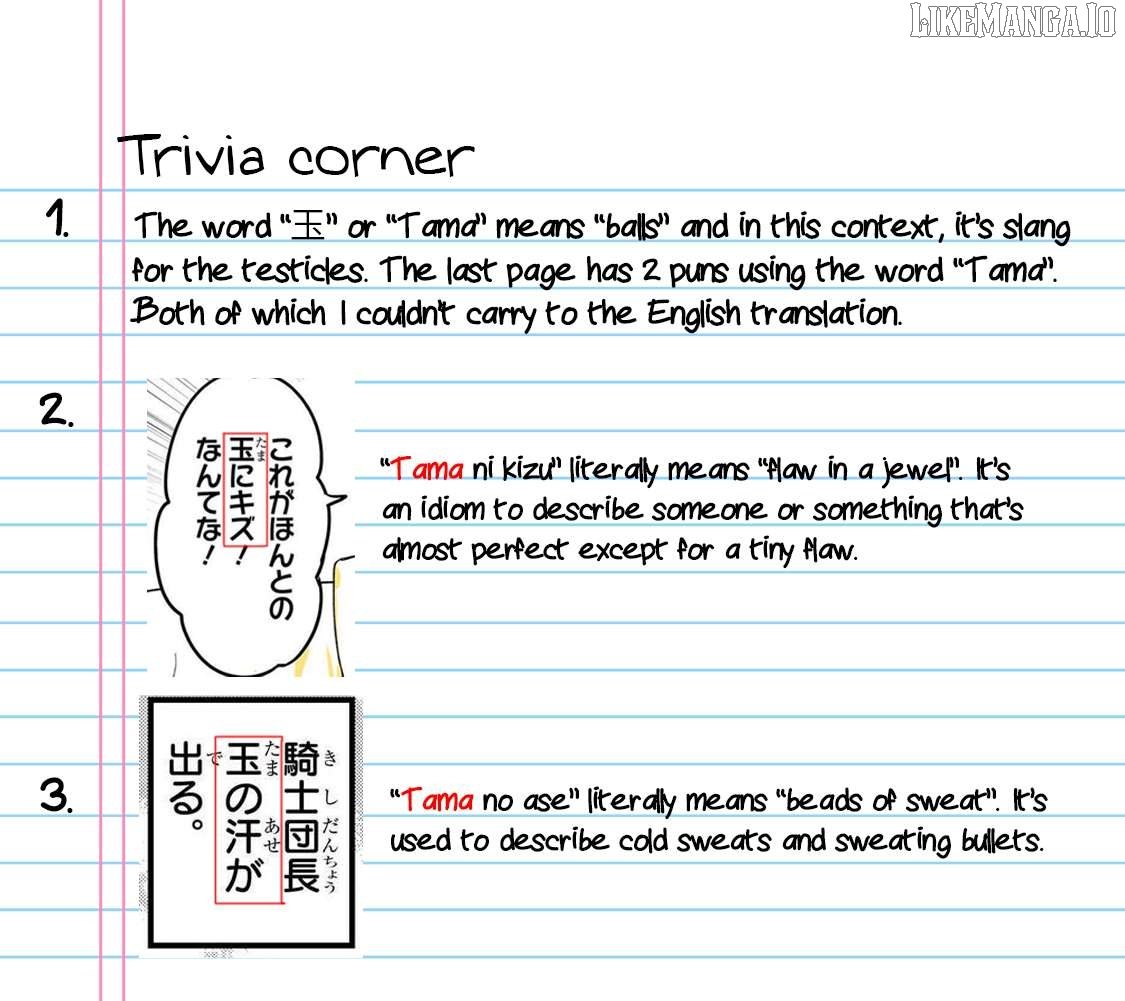 LIKEMANGA.IO
Trivia corner
1.
The word "玉" or "Tama" means "balls" and in this context, it's slang
for the testicles. The last page has 2 puns using the word "Tama".
Both of which I couldn't carry to the English translation.
2.
これがほんとの
玉にキズ！
たま
なんてな！
"Tama ni kizu" literally means "flaw in a jewel". It's
an idiom to describe someone or something that's
almost perfect except for a tiny flaw.
3.
騎士団長
きしだんちょう
玉の汗が
たま あせ
出る。
で
"Tama no ase" literally means "beads of sweat". It's
used to describe cold sweats and sweating bullets.